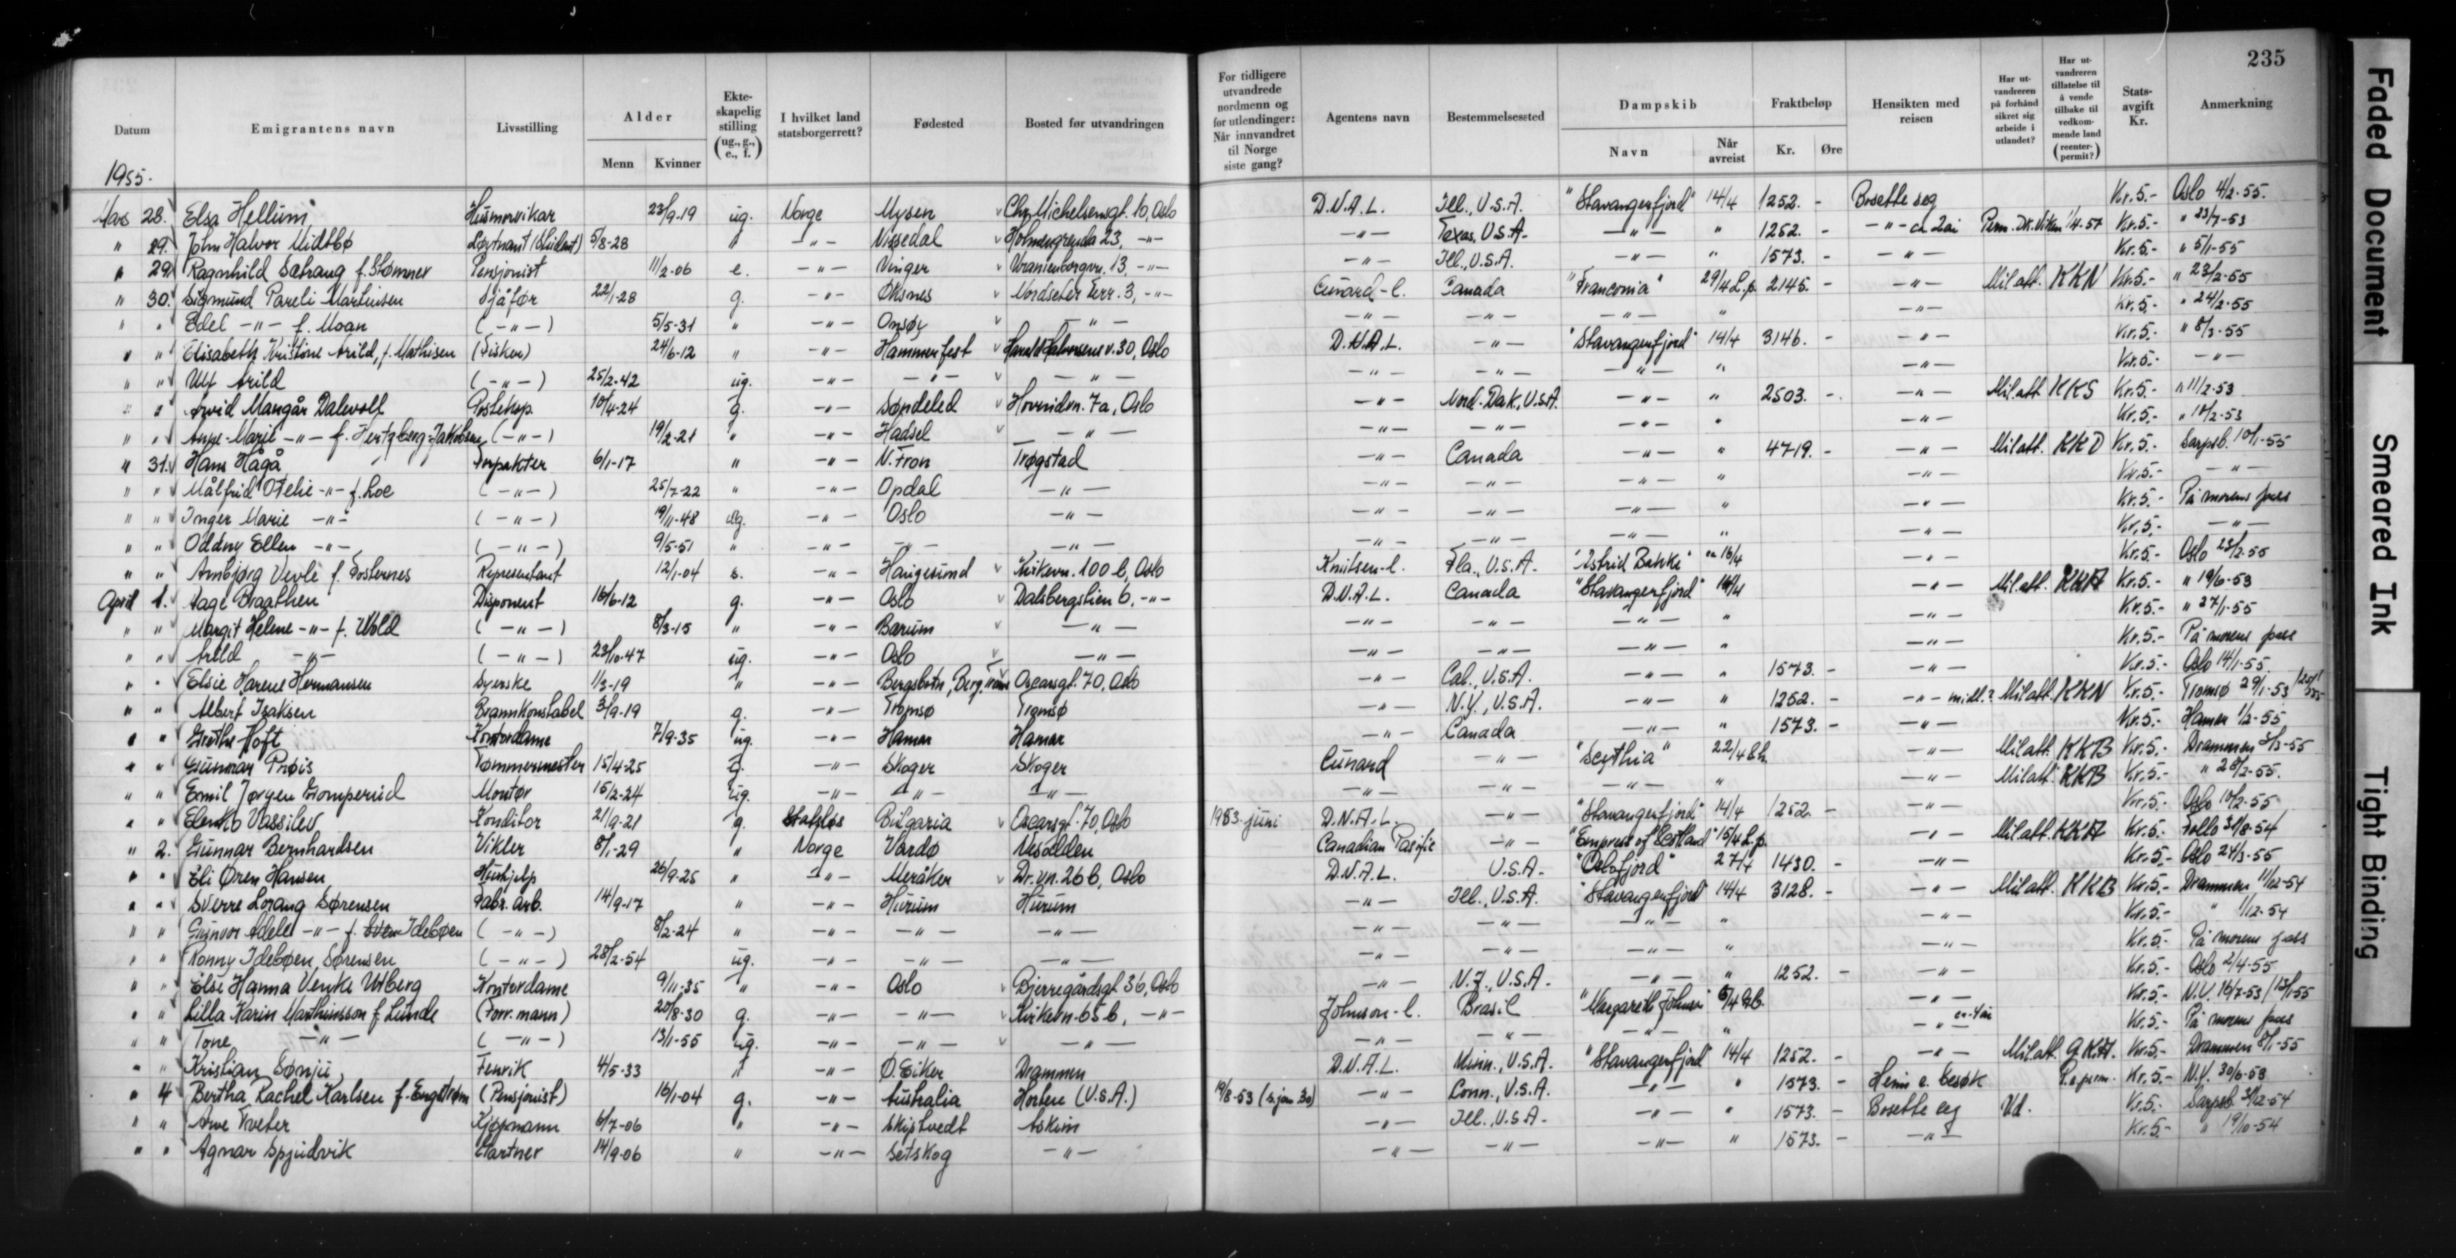 235
Datum | Emigrantens navn | Livsstilling | Alder Menn Kvinner | Ekteskapelig stilling (ug., g., e., f.) | I hvilket land statsborgerrett? | Fødested | Bosted før utvandringen | For tidligere utvandrede nordmenn og for utlendinger: Når innvandret til Norge siste gang? | Agentens navn | Bestemmelsessted | Dampskib Navn Når avreist | Fraktbeløp Kr. Øre | Hensikten med reisen | Har utvandreren på forhånd sikret sig arbeide i utlandet? | Har utvandreren tillatelse til å vende tilbake til vedkommende land (reenterpermit?) | Statsavgift Kr. | Anmerkning
1955.
Mars 28. Elsa Hellum Husmorvikar 23/9-19 ug. Norge Mysen Chr. Michelsensgt. 10, Oslo D.N.A.L. Ill., U.S.A. "Stavangerfjord" 14/4 1252. - Bosette seg Kr. 5.- Oslo 4/2-55.
" 29. John Halvor Midtbø Løytnant (Student) 5/8-28 " -"- Nissedal Holmengrenda 23, -"- -"- Texas, U.S.A. -"- " 1252. - -"- ca. 2 år Kr. 5.- " 23/7-53
" 29. Ragnhild Sætrang f. Stømner Pensjonist 11/2-06 e. -"- Vinger Uranienborgvn. 13, -"- -"- Ill., U.S.A. -"- " 1573. - -"- Kr. 5.- " 5/1-55
" 30. Sigmund Pareli Martinsen Sjåfør 22/1-28 g. -"- Øksnes Nordseter Terr. 3, -"- Cunard-l. Canada "Franconia" 29/4 L.p. 2145. - -"- Mil att. KKN Kr. 5.- " 23/2-55
" " Edel -"- f. Moan (-"-) 5/5-31 " -"- Onsøy -"- -"- -"- -"- " -"- Kr. 5.- " 24/2-55
" " Elisabeth Kristine Arild, f. Mathisen (Fisker) 24/6-12 " -"- Hammerfest v. 30, Oslo D.N.A.L. -"- "Stavangerfjord" 14/4 3146. - -"- Kr. 5.- " 8/3-55
" " Ulf Arild (-"-) 25/2-42 ug. -"- -"- -"- -"- -"- -"- " -"- Kr. 5.- -"-
" " Arvid Mangår Dalevoll Posteksp. 10/4-24 g. -"- Søndeled Hovindvn. 7a, Oslo -"- Nord-Dak, U.S.A. -"- " 2503. - -"- Mil att. KKS Kr. 5.- " 11/2-53
" " Anne-Marie -"- f. Hertzberg-Jakobsen (-"-) 19/2-21 " -"- Hadsel -"- -"- -"- -"- " -"- Kr. 5.- " 10/2-53
" 31. Hans Hågå Forpakter 6/1-17 " -"- N. Fron Trøgstad -"- Canada -"- " 4719. - -"- Mil att. KKD Kr. 5.- Sarpsb. 10/1-55
" " Målfrid Ofelie -"- f. Loe (-"-) 25/7-22 " -"- Opdal -"- -"- -"- -"- " -"- Kr. 5.- -"-
" " Inger Marie -"- (-"-) 19/11-48 ug. -"- Oslo -"- -"- -"- -"- " -"- Kr. 5.- På morens pass
" " Oddny Ellen -"- (-"-) 9/5-51 " -"- -"- -"- -"- -"- -"- " -"- Kr. 5.- -"-
" " Arnbjørg Vevle f. Fosternes Representant 12/1-04 s. -"- Haugesund Kirkevn. 100 b, Oslo Knutsen-l. Fla., U.S.A. "Astrid Bakke" ca 16/4 -"- Kr. 5.- Oslo 23/2-55
April 1. Aage Braathen Disponent 16/6-12 g. -"- Oslo Dalsbergstien 6, -"- D.N.A.L. Canada "Stavangerfjord" 14/4 -"- Mil. att. KKA Kr. 5.- " 19/6-53
" " Margit Helene -"- f. Wold (-"-) 8/3-15 " -"- Bærum -"- -"- -"- -"- " -"- Kr. 5.- " 27/1-55
" " Arild -"- (-"-) 23/10-47 ug. -"- Oslo -"- -"- -"- -"- " -"- Kr. 5.- På morens pass
" " Elsie Hermansen Syerske 1/3-19 " -"- Oscarsgt. 70, Oslo -"- Cal., U.S.A. -"- " 1573. - -"- Kr. 5.- Oslo 14/1-55
" " Albert Isaksen Brannkonstabel 3/9-19 g. -"- Tromsø Tromsø -"- N.Y., U.S.A. -"- " 1252. - -"- Mil att. KKN Kr. 5.- Tromsø 29/1-53
" " Grethe Hoft Kontordame 7/9-35 ug. -"- Hamar Hamar -"- Canada -"- " 1573. - -"- Kr. 5.- Hamar 1/2-55
" " Gunnar Prøis Tømmermester 15/4-25 g. -"- Skoger Skoger Cunard -"- "Scythia" 22/4 -"- Mil att. KKB Kr. 5.- Drammen 8/3-55
" " Emil Jørgen Gomperud Montør 15/2-24 ug. -"- -"- -"- -"- -"- -"- " -"- Mil att. KKB Kr. 5.- " 28/2-55.
" " Elenko Vassilev Konditor 21/9-21 g. Statsløs Bulgaria Oscarsgt. 70, Oslo 1953 juni D.N.A.L. -"- "Stavangerfjord" 14/4 1252. - -"- Kr. 5.- Oslo 10/2-55
" 2. Gunnar Bernhardsen Vikler 8/1-29 " Norge Vardø Nesodden Canadian Pacific -"- "Empress of Scotland" 15/4 L.p. -"- Mil att. KKA Kr. 5.- Follo 31/8-54
" " Eli Øren Hansen Hushjelp 26/9-25 " -"- Meråker Dr. vn. 26 b, Oslo D.N.A.L. U.S.A. "Oslofjord" 27/4 1430. - -"- Kr. 5.- Oslo 24/3-55
" " Sverre Lorang Sørensen Fabr. arb. 14/9-17 " -"- Hurum Hurum -"- Ill., U.S.A. "Stavangerfjord" 14/4 3128. - -"- Mil att. KKB Kr. 5.- Drammen 11/12-54
" " Gunvor Adele -"- f. Idebøen (-"-) 8/2-24 " -"- -"- -"- -"- -"- -"- " -"- Kr. 5.- " 1/12-54
" " Ronny Idebøen Sørensen (-"-) 28/2-54 ug. -"- -"- -"- -"- -"- -"- " -"- Kr. 5.- På morens pass
" " Else Hanna Venke Utberg Kontordame 9/11-35 " -"- Oslo Bjerregårdsgt. 36, Oslo -"- N.J., U.S.A. -"- " 1252. - -"- Kr. 5.- Oslo 2/4-55
" " Lilla Karin Marthinsson f. Lunde (Forr. mann) 20/8-30 g. -"- -"- Kirkevn. 65 b, -"- Johnson-l. Brasil "Margareth Johnson" -"- Kr. 5.- N.V. 16/7-53 / 13/1-55
" " Tone -"- (-"-) 13/1-55 ug. -"- -"- -"- -"- -"- -"- " -"- Kr. 5.- På morens pass
" " Kristian Sønju Fenrik 4/5-33 " -"- Ø. Eiker Drammen D.N.A.L. Minn., U.S.A. "Stavangerfjord" 14/4 1252. - -"- Mil att. Kr. 5.- Drammen 8/1-55
" 4 Bertha Rachel Karlsen f. Engstrøm (Pensjonist) 16/1-04 g. -"- Australia Horten (U.S.A.) 19/8-53 -"- Conn., U.S.A. -"- " 1573. - Heim e. besøk Kr. 5.- N.Y. 30/6-53
" " Arve Tveter Kjøpmann 6/7-06 " -"- Skiptvedt Askim -"- Ill., U.S.A. -"- " 1573. - Bosette seg Ud. Kr. 5.- Sarpsb.
" " Agnar Spjudvik Gartner 14/9-06 " -"- Setskog -"- -"- -"- -"- " 1573. - -"- Kr. 5.- " 19/10-54
Faded Document
Smeared Ink
Tight Binding